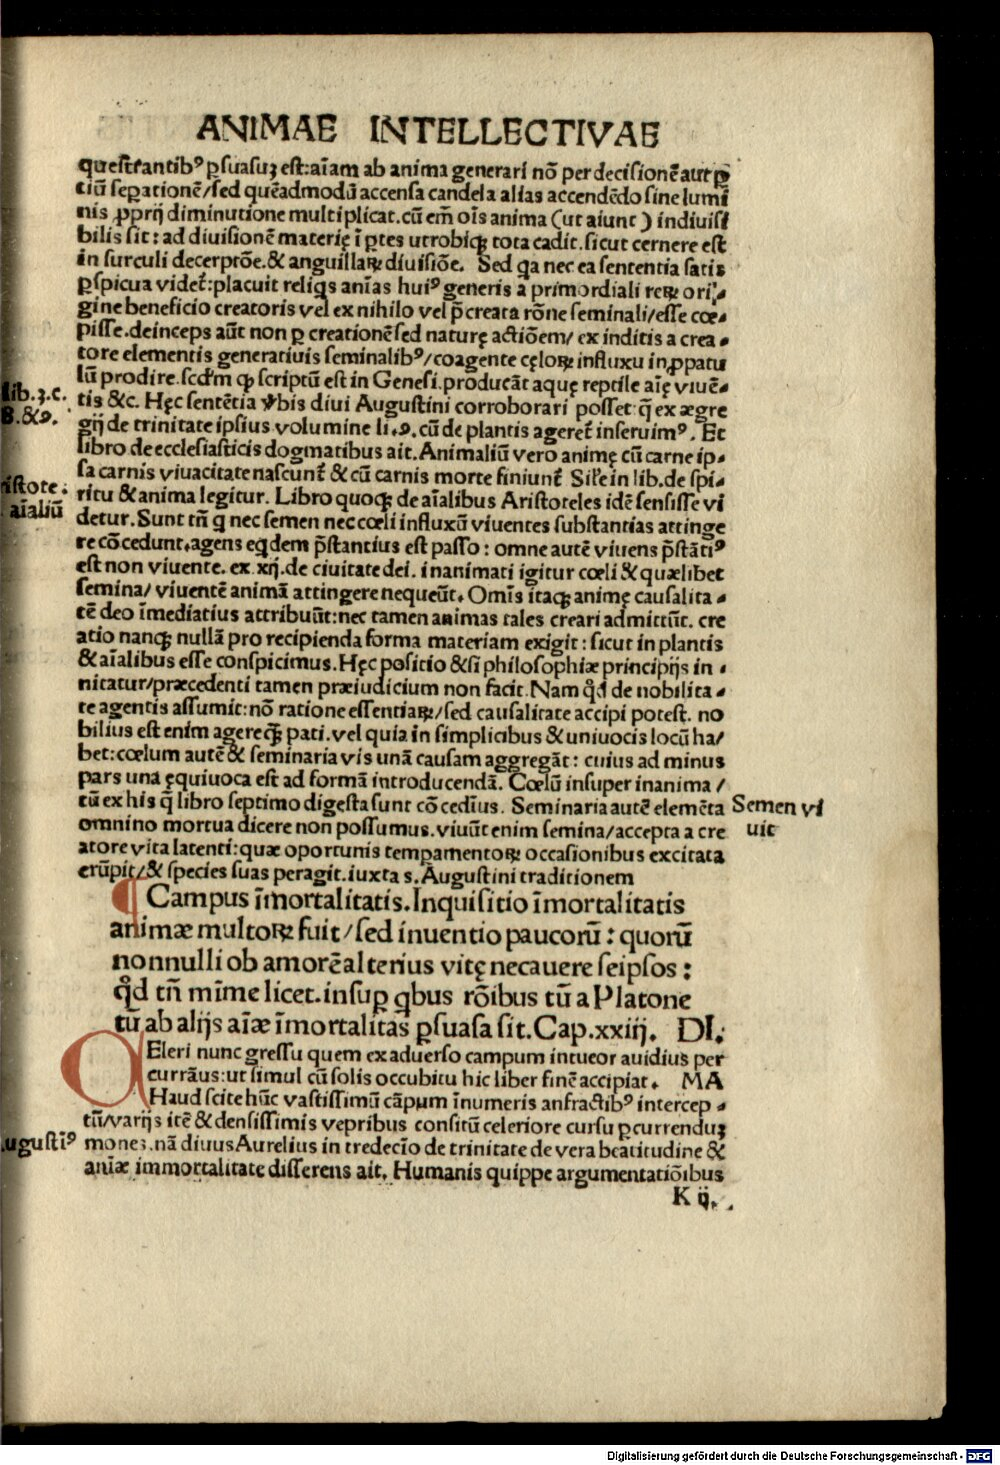 ANIMAE INTELLECTIVAE
questrantibꝰ ꝑsuasuꝫ est: aīam ab anima generari nō per decisionē aut ꝑ
tiū seꝑationē/sed quēadmodū accensa candela alias accendēdo sine lumi
nis ꝓprij diminutione multiplicat. cū em̄ oīs anima (ut aiunt) indiuisi
bilis sit: ad diuisionē materię ī ꝑtes utrobiqꝫ tota cadit. sicut cernere est
in surculi decerptōe. & anguillaꝝ diuisiōe. Sed qa nec ea sententia satis
ꝑspicua videt̄: placuit reliqs anīas huiꝰ generis a primordiali reꝝ ori-
gine beneficio creatoris vel ex nihilo vel p̄creata rōne seminali/esse cœ-
pisse. deinceps aūt non ꝑ creationē sed naturę actiōem/ ex inditis a crea-
tore elementis generatiuis seminalibꝰ/coagente cęloꝝ influxu in ꝓpatu
lū prodire. scd̄m qꝫ scriptū est in Genesi. producāt aquę reptile aīę viuē-
tis &c. Hęc sentētia v̓bis diui Augustini corroborari posset q̄ ex ægre
gij de trinitate ipsius volumine li.9. cū de plantis ageret̄ inseruimꝰ. Et
libro de ecclesiasticis dogmatibus ait. Animaliū vero animę cū carne ip-
sa carnis viuacitate nascunt̄ & cū carnis morte finiunt̄ Sil̓e in lib. de spi-
ritu & anima legitur. Libro quoqꝫ de aīalibus Aristoteles idē sensisse vi
detur. Sunt tn̄ q nec semen nec cœli influxū viuentes substantias attinge
re cōcedunt. agens eqdem p̄stantius est passo: omne autē viuens p̄stātiꝰ
est non viuente. ex .xij. de ciuitate dei. inanimati igitur cœli & quælibet
semina/ viuentē animā attingere nequeūt. Omīs itaqꝫ animę causalita-
tē deo īmediatius attribuūt: nec tamen animas tales creari admittūt. cre
atio nanqꝫ nullā pro recipienda forma materiam exigit: sicut in plantis
& aīalibus esse conspicimus. Hęc positio & si philosophiæ principijs in-
nitatur/præcedenti tamen præiudicium non facit. Nam qd̓ de nobilita-
te agentis assumit: nō ratione essentiaꝝ/sed causalitate accipi potest. no
bilius est enim agere qꝫ pati. vel quia in simplicibus & uniuocis locū ha/
bet: cœlum autē & seminaria vis unā causam aggregāt: cuius ad minus
pars una ęquiuoca est ad formā introducendā. Cœlū insuper inanima/
tū ex his q̄ libro septimo digesta sunt cōcedīus. Seminaria autē elemēta
omnino mortua dicere non possumus. viuūt enim semina/accepta a cre
atore vita latenti: quæ oportunis tempamentoꝝ occasionibus excitata
erūpit/& species suas peragit. iuxta s. Augustini traditionem
lib.3.c.
8.&9.
istote.
aīaliū
Semen vi
uit
¶ Campus īmortalitatis. Inquisitio īmortalitatis
animæ multoꝝ fuit/sed inuentio paucorū: quorū
nonnulli ob amorē alterius vitę necauere seipsos:
qd̓ tn̄ mīme licet. insuꝑ qbus rōibus tū a Platone
tū ab alijs aīæ īmortalitas ꝑsuasa sit. Cap. xxiij. DI:
CEleri nunc gressu quem ex aduerso campum intueor auidius per
currāus: ut simul cū solis occubitu hic liber finē accipiat. MA
Haud scite hūc vastissimū cāpum īnumeris anfractibꝰ intercep-
tū/varijs itē & densissimis vepribus consitū celeriore cursu ꝑcurrenduꝫ
mones. nā diuus Aurelius in tredecīo de trinitate de vera beatitudine &
anīæ immortalitate disserens ait. Humanis quippe argumentatiōibus
ugustiꝰ
K ij.
Digitalisierung gefördert durch die Deutsche Forschungsgemeinschaft - DFG